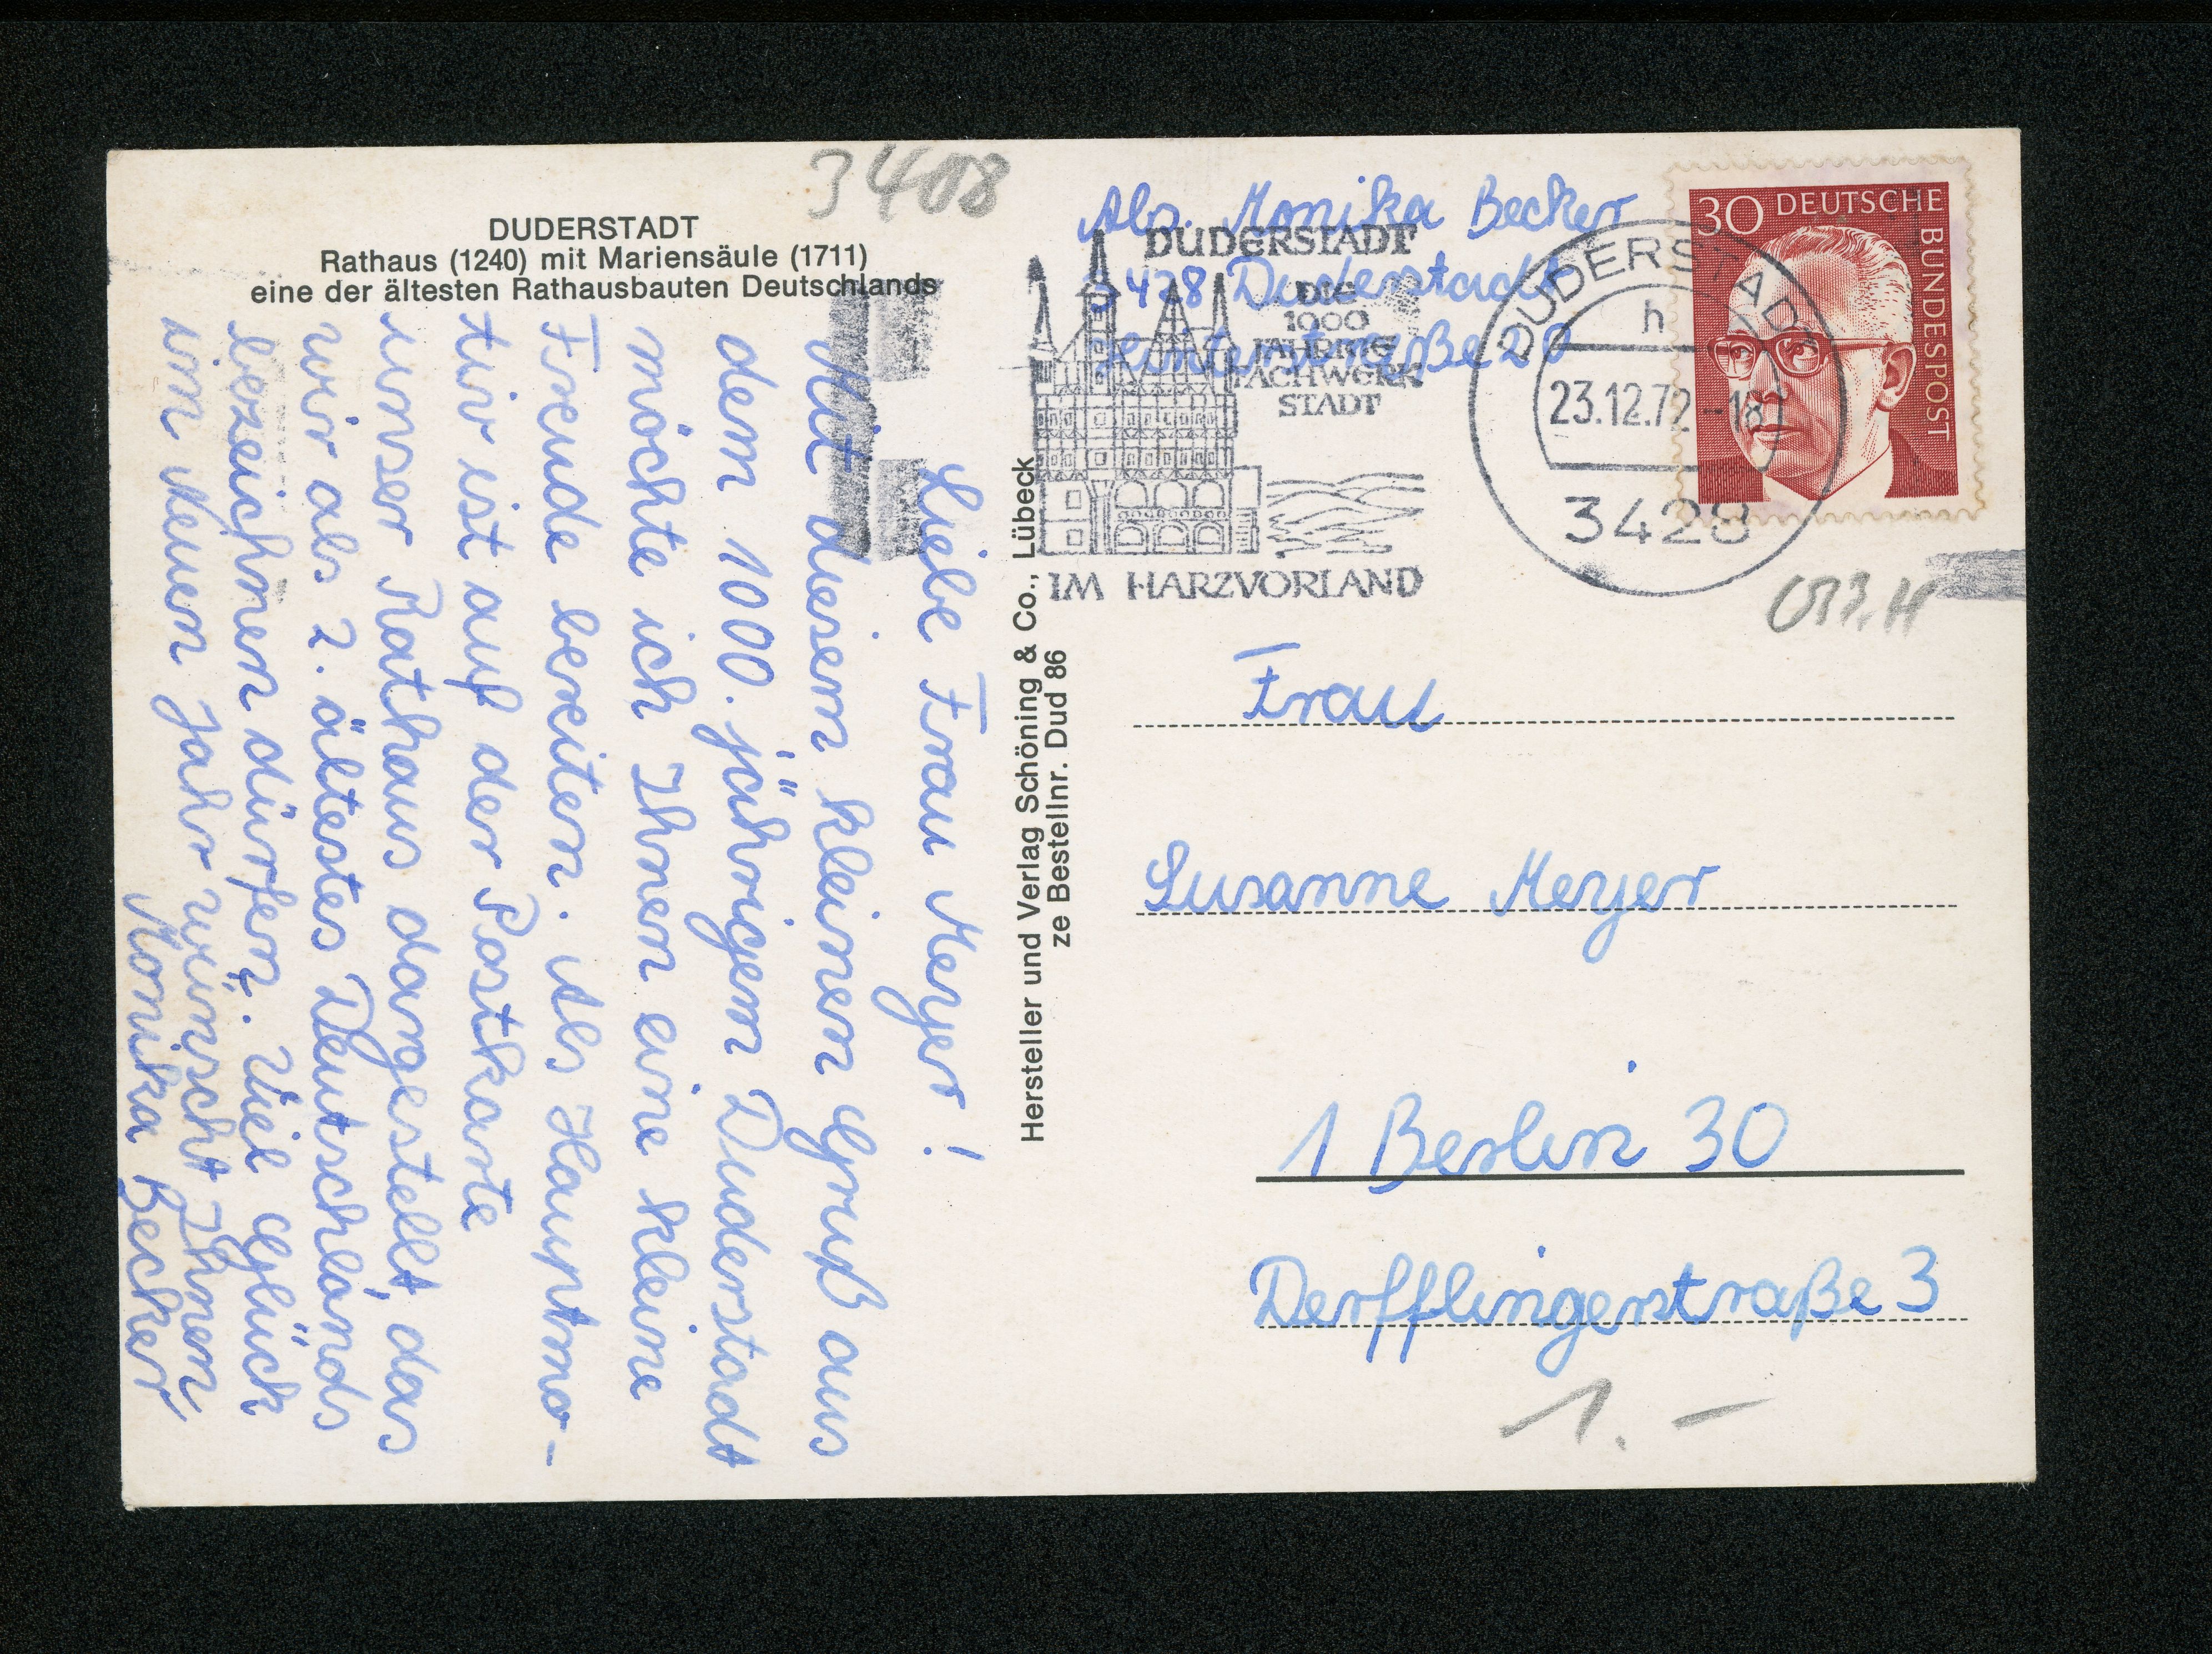 3408
DUDERSTADT
Rathaus (1240) mit Mariensäule (1711)
eine der ältesten Rathausbauten Deutschlands
Liebe Frau Meyer!
Mit diesem kleinen Gruß aus
dem 1000. jährigem Duderstadt
möchte ich Ihnen eine kleine
Freude bereiten. Als Hauptmo-
tiv ist auf der Postkarte
unser Rathaus dargestellt, das
wir als 2. ältestes Deutschlands
bezeichnen dürfen. Viel Glück
im Neuen Jahr wünscht Ihnen
Monika Becker
Hersteller und Verlag Schöning & Co., Lübeck
ze Bestellnr. Dud 86
Abs. Monika Becker
3428 Duderstadt
20
DUDERSTADT
DIE
1000
JÄHRIGE
FACHWERK
STADT
IM HARZVORLAND
DUDERSTADT
h
23.12.72-18
3428
30 DEUTSCHE
BUNDESPOST
Frau
Susanne Meyer
1 Berlin 30
Derfflingerstraße 3
1.-